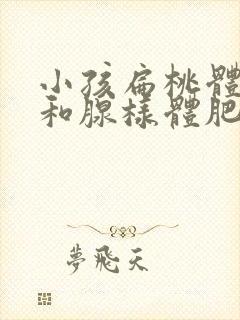 小孩扁桃體
和腺樣體肥
夢飛天